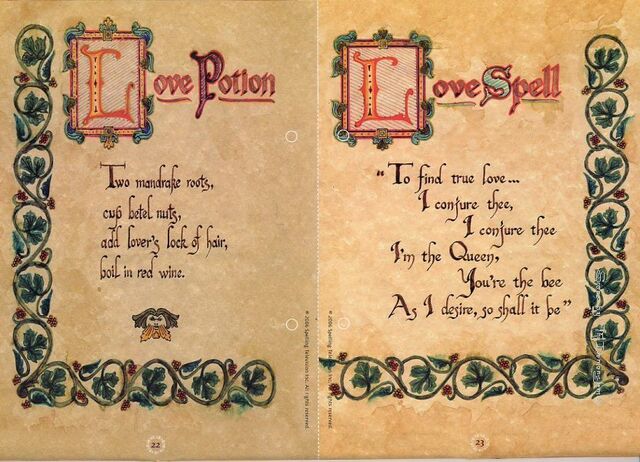 Love Potion
Two mandrake roots,
cup betel nuts,
add lover's lock of hair,
boil in red wine.
22
Love Spell
"To find true love...
I conjure thee,
I conjure thee
I'm the Queen,
You're the bee
As I desire, so shall it be"
23
© 2006 Spelling Television Inc. All rights reserved.